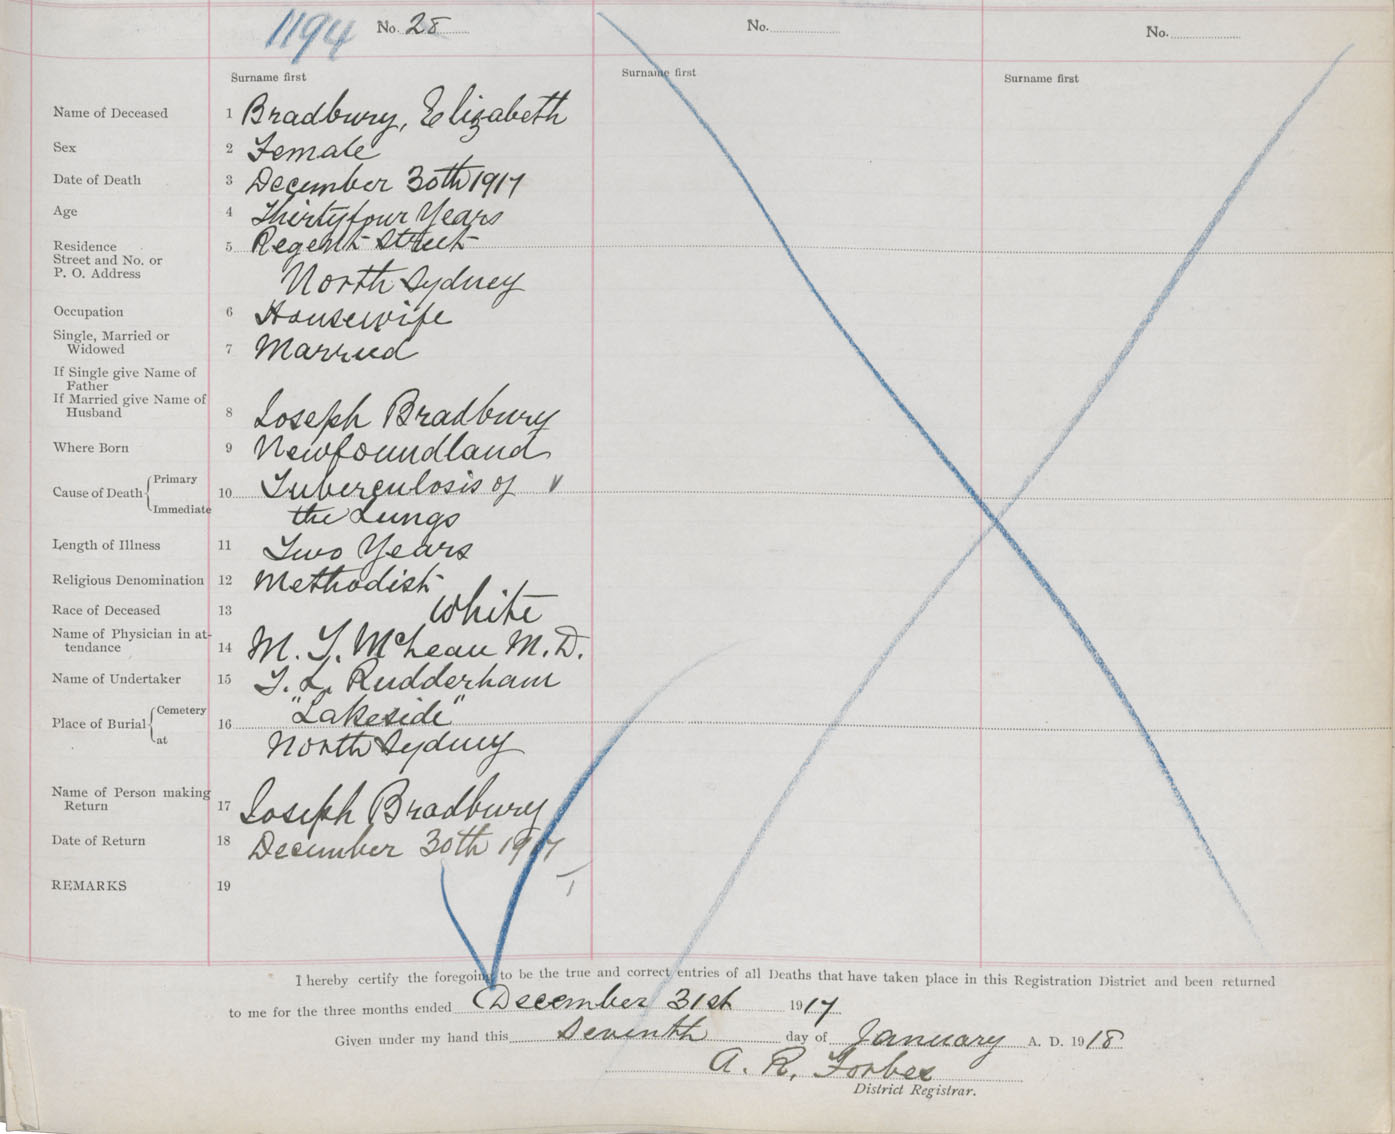 1194 No. 28 No. No.
Surname first Surname first Surname first
Name of Deceased 1 Bradbury, Elizabeth
Sex 2 Female
Date of Death 3 December 30th 1917
Age 4 Thirtyfour Years
Residence 5 Regent Street
Street and No. or
P. O. Address North Sydney
Occupation 6 Housewife
Single, Married or
Widowed 7 Married
If Single give Name of
Father
If Married give Name of
Husband 8 Joseph Bradbury
Where Born 9 Newfoundland
Cause of Death Primary 10 Tuberculosis of
Immediate the Lungs
Length of Illness 11 Two Years
Religious Denomination 12 Methodist
Race of Deceased 13 White
Name of Physician in at-
tendance 14 M. T. McLean M.D.
Name of Undertaker 15 F. L. Rudderham
Place of Burial Cemetery 16 "Lakeside"
at North Sydney
Name of Person making
Return 17 Joseph Bradbury
Date of Return 18 December 30th 1917
REMARKS 19
I hereby certify the foregoing to be the true and correct entries of all Deaths that have taken place in this Registration District and been returned
to me for the three months ended December 31st 1917
Given under my hand this Seventh day of January A. D. 1918
A. R. Forbes
District Registrar.